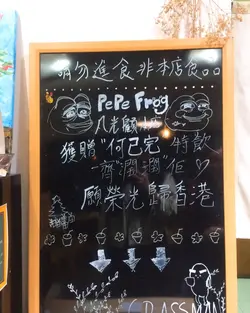 請勿進食非本店食品
PePe Frog
凡光顧
獲贈"何已完"特飲
一齊"潤潤"佢
願榮光歸香港
GRASSMAN